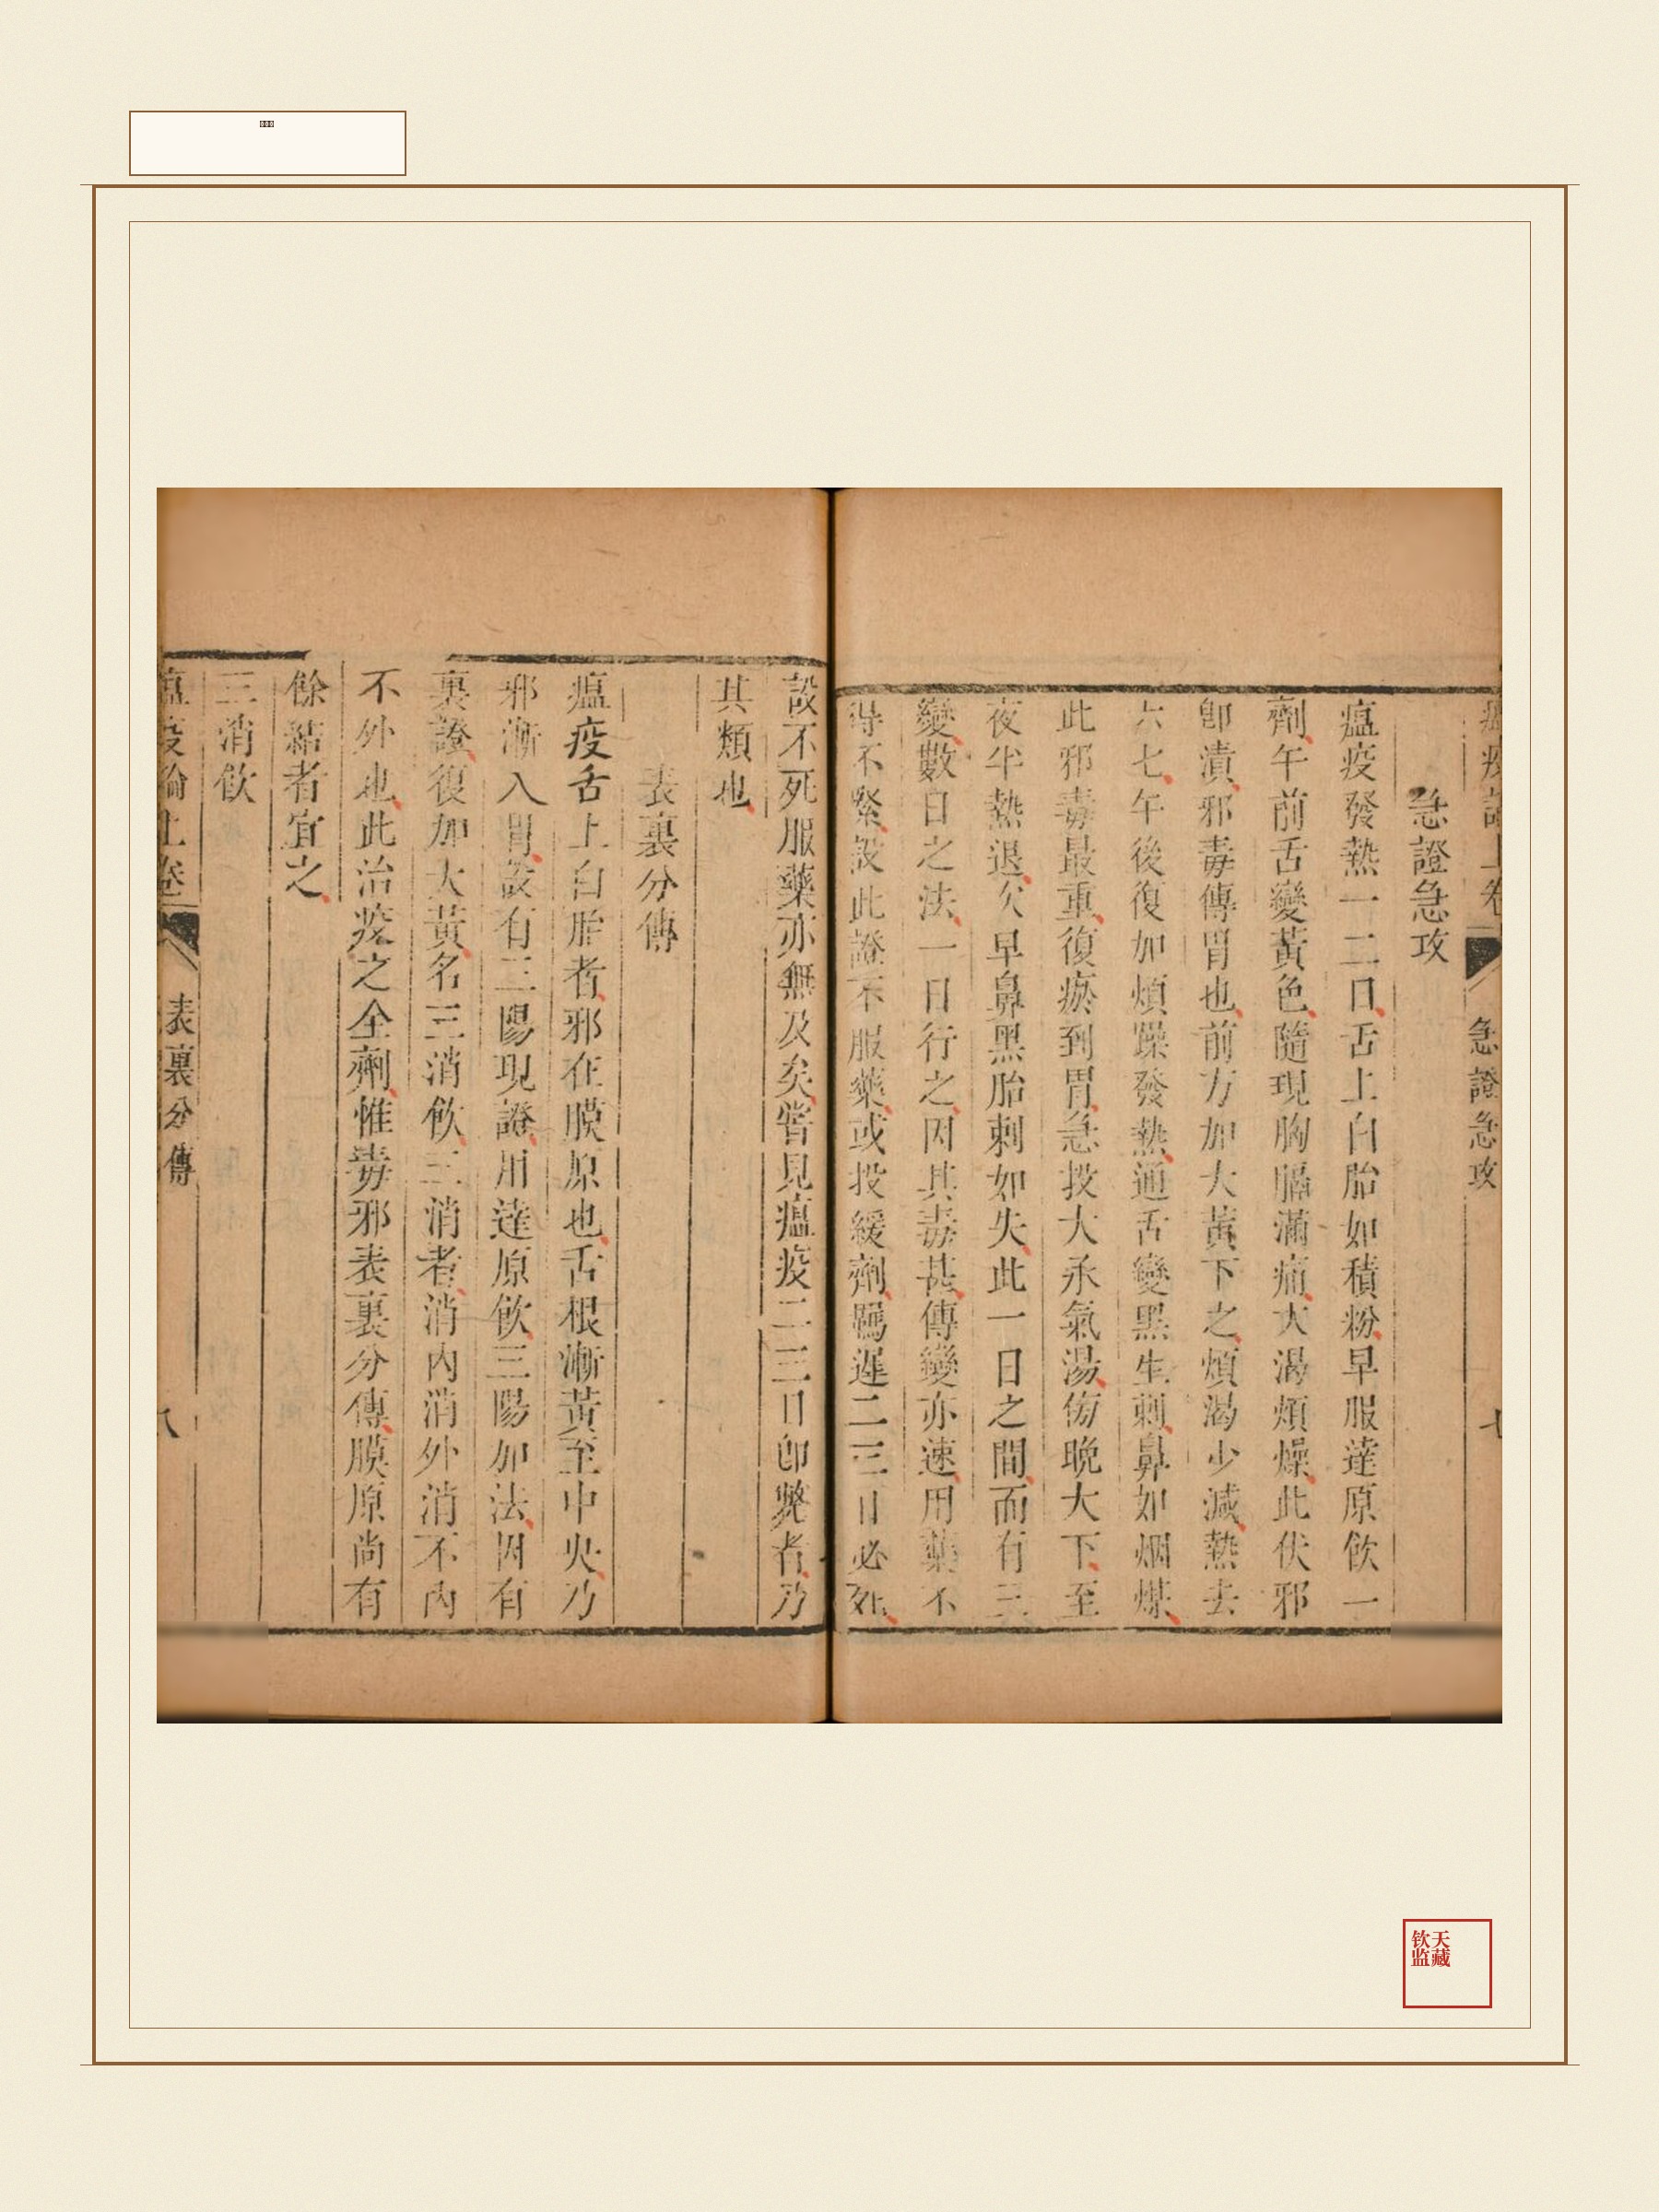 急證急攻
急證急攻
瘟疫發熱一二日舌上白胎如積粉早服達原飲一
劑午前舌變黃色隨現胸膈滿痛大渴煩燥此伏邪
卽潰邪毒傳胃也前方加大黃下之煩渴少減熱去
六七午後復加煩躁發熱通舌變黑生刺鼻如烟煤
此邪毒最重復瘀到胃急投大承氣湯傍晚大下至
夜半熱退次早鼻黑胎刺如失此一日之間而有三
變數日之法一日行之因其毒甚傳變亦速用藥不
得不緊設此證不服藥或投緩劑羈遲二三日必死
設不死服藥亦無及矣嘗見瘟疫二三日卽斃者乃
其類也
表裏分傳
瘟疫舌上白胎者邪在膜原也舌根漸黃至中央乃
邪漸入胃設有三陽現證用達原飲三陽加法因有
裏證復加大黃名三消飲三消者消內消外消不內
不外也此治疫之全劑惟毒邪表裏分傳膜原尚有
餘結者宜之
三消飲
瘟疫論上卷 表裏分傳 八
天藏
钦监